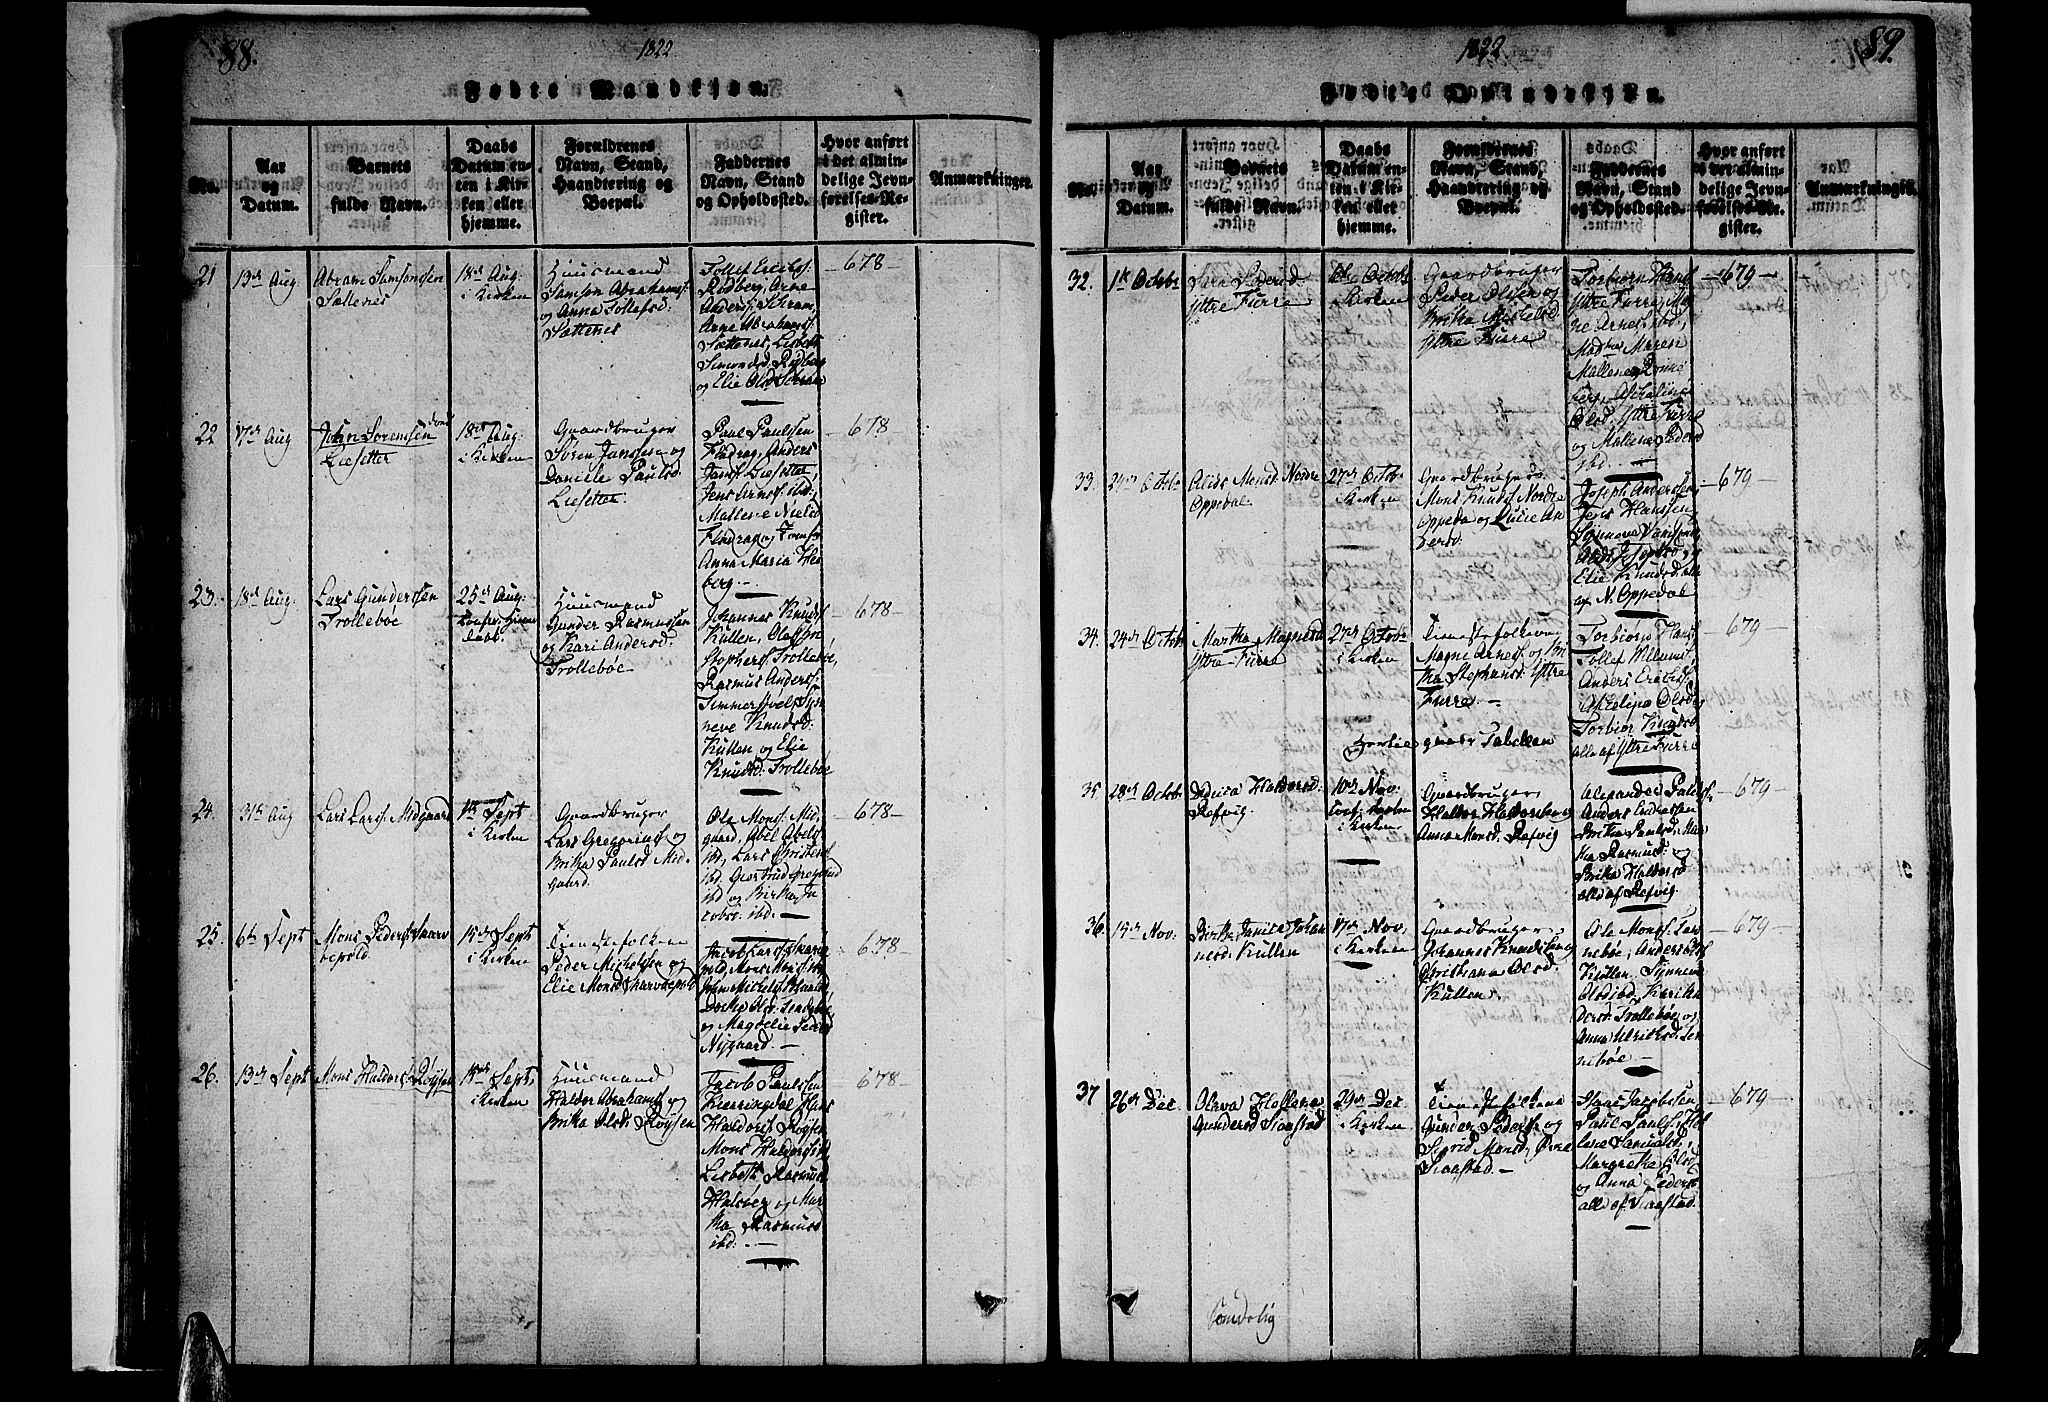 88.
1822
Fødte Mandkjøn.
No.
Aar
og
Datum.
Barnets
fulde Navn.
Daabs
Datum en-
ten i Kir-
ken eller
hjemme.
Forældrenes
Navn, Stand,
Haandtering og
Boepæl.
Faddernes
Navn, Stand
og Opholdssted.
Hvor anført
i det almin-
delige Jevn-
førelses-Re-
gister.
Anmærkninger.
21
13de Aug
Abram Samsonsen
Sættenes
18de Aug:
i Kirken
Huusmand
Samson Abrahams:
og Anna Tollefsd:
Sættenes
Tollef Erichs:
Rødberg, Arne
Anders: Schram,
Anne Abrahams:
Sættenes, Lisbeth
Simonsd. Rødberg
og Elie Olsd Schram
678
22
17de Aug
John Sørensen
Liesetter
18de Aug:
i Kirken
Gaardbruger
Søren Janssen og
Daniele Paulsd.
Liesetter
Paul Paulsen
Fladrag, Anders
Jans: Liesetter,
Jens Arns: ibd,
Mallene Niels
Fladrag og Jomfr
Anna Maria Hed
berg.
678
23.
18de Aug:
Lars Gundersen
Trolleboe
25de Aug:
Huusmand
Gunder Rasmussen
og Kari Andersd:
Trolleboe
Johannes Knuds
Kullen, Ola Chri
stophers: Trolleboe,
Rasmus Anders:
Simmersvel, Syn
neve Knudsd:
Kullen og Elie
Knudsd: Trolleboe
678
24.
31te Aug
Lars Lars: Midgaard
1te Sept
i Kirken
Gaardbruger
Lars Gregorius: og
Brita Paulsd Mid-
gaard.
Ole Mons: Mid
gaard, Abel Abels:
ibd, Lars Christens:
ibd. Giertrud Greg
ibd og Birthe Ja
cobs: ibd.
678
25.
6te Sept
Mons Peders: Skarv
bepold.
15de Sept
i Kirken
Tienestefolkene
Peder Michelsen og
Elie Monsd Skarvbepold
Jacob Lars: Skarv
pold, Mons Mons: ibd
678
26.
13de Sept
Mons Haldors: Røysen
15de Sept,
i Kirken
Huusmand
Haldor Abrahams: og
Brita Olsd: Røysen
Jacob Paulssen
Kierringdal, Hans
Haldors: Røysen
Mons Haldors: ibd,
Lisbeth Rasmusd
Halsøer og Mar
tha Rasmusd
ibd:
678
89.
1822
Fødte Qvindekjøn.
No.
Aar
og
Datum.
Barnets
fulde Navn.
Daabs
Datum en-
ten i Kir-
ken eller
hjemme.
Forældrenes
Navn, Stand,
Haandtering og
Boepæl.
Faddernes
Navn, Stand
og Opholdssted.
Hvor anført
i det almin-
delige Jevn-
førelses-Re-
gister.
Anmærkninger.
32.
1te Octobr
Sara Pedersd
Yttre Furre
6te Octobr
i Kirken
Gaardbruger
Peder Olsen og
Brita Michelsd.
Yttre Furre
Torbiorn Hans:
Yttre Furre, Mag
ne Arnes: ibd,
Mad: Maren
Mallene
Olsd, Yttre Furre
og Mallene Pedersd
ibd.
679
33.
24de Octobr
Alids Monsd. Nordre
Oppedal
27de Octbr
i Kirken
Gaardbruger
Mons Knuds: Nordre
Oppeda og Lucie An
dersd.
Joseph Andersen,
Jens Hanssen
Elie Knudsd. alle
af N. Oppedal
679
34.
24de Octobr
Martha Magnesd
Yttre Furre
27de Octobr
i Kirken
Tienestefolkene
Magne Arness: og Bri
tha Stephensd. Yttre
Furre.
Torbiorn Hans:
Tollef Villums:
Anders Erichs:
Torbior Knudsd
alle af Yttre Furre
679
Tabellen
35.
28de Octobr
Haldorsd:
Refvig.
10de Nov:
i Kirken
Gaardbruger
Haldor Haldorsen og
Anna Monsd. Refvig
Alexander Pauls:
Anders Endresen
Brita Paulsd, Mar
tha Rasmusd: og
Brita Haldorsd
alle af Refvig.
679
36.
15de Nov:
Birte Janica Johan
nesd: Kullen
17de Nov,
i Kirken
Gaardbruger
Johannes Knudsen og
Christiana Olesd.
Kullen.
Ole Mons: Lar
nebøe, Anders Ols:
Kullen, Synneve
Olsd ibd, Kari An
dersd. Trollebøe og
Anna Ulrichsd. Lar
nebøe
679
37
26de Dec.
Olava Hellena
Gundersd Raastad
29de Dec
i Kirken
Tienestefolkene
Gunder Peders: og
Sigrid Monsd, Øvre
Raastad.
Hans Jacobsen
Paul Pauls: He
lene Samuelsd,
Margrethe Olsd
og Anna Pedersd
alle af Raastad.
679